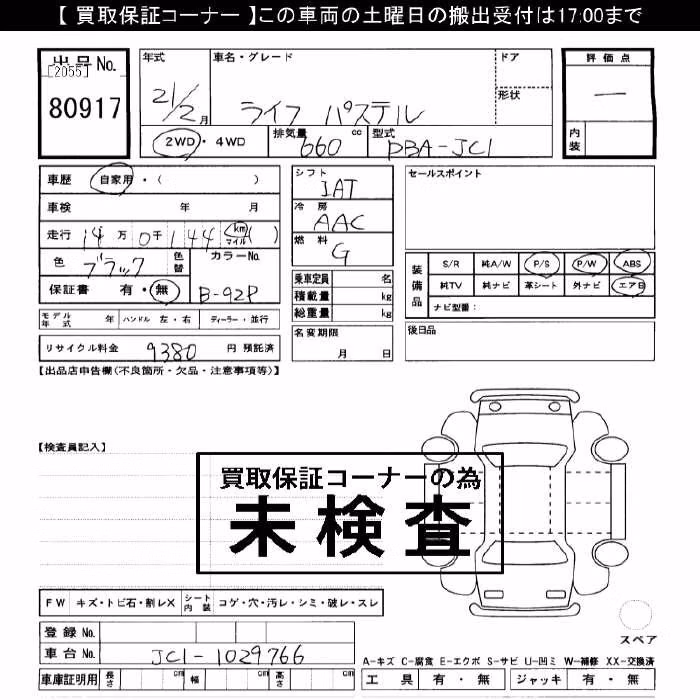 【 買取保証コーナー 】この車両の土曜日の搬出受付は17:00まで
出品No.
[2055]
80917
年式
21/2月
車名・グレード
ライフ パステル
ドア
形状
評価点
―
内装
2WD・4WD
排気量
660 cc
型式
DBA-JC1
車歴 自家用・( )
車検 年 月
走行 14万0千144 km マイル ( )
色 ブラック 色替
カラーNo.
B-92P
保証書 有・無
シフト
IAT
冷房
AAC
燃料
G
乗車定員 名
積載量 kg
総重量 kg
名変期限
月 日
セールスポイント
装備品
S/R 純A/W P/S P/W ABS
純TV 純ナビ 革シート 外ナビ エアB
ナビ型番:
後日品
モデル年式 年 ハンドル 左・右 ディーラー・並行
リサイクル料金 9380 円 預託済
【出品店申告欄(不良箇所・欠品・注意事項等)】
【検査員記入】
買取保証コーナーの為
未検査
FW キズ・トビ石・割レX シート内装 コゲ・穴・汚レ・シミ・破レ・スレ
登録No.
車台No. JC1-1029766
車庫証明用 長さ cm 幅 cm 高さ cm
スペア
A-キズ C-腐食 E-エクボ S-サビ U-凹ミ W-補修 XX-交換済
工具 有・無 ジャッキ 有・無